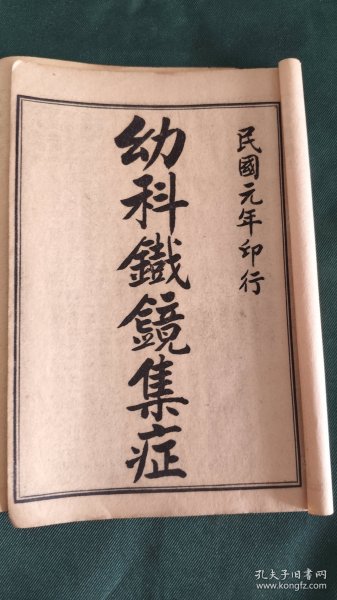 民國元年印行
幼科鐵鏡集症
孔夫子旧书网
www.kongfz.com